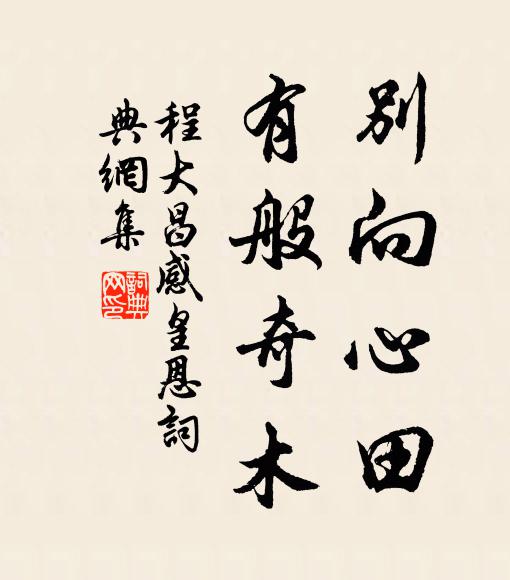 別向心田
有般奇木
程大昌感皇恩詞
典網集
詞典網印